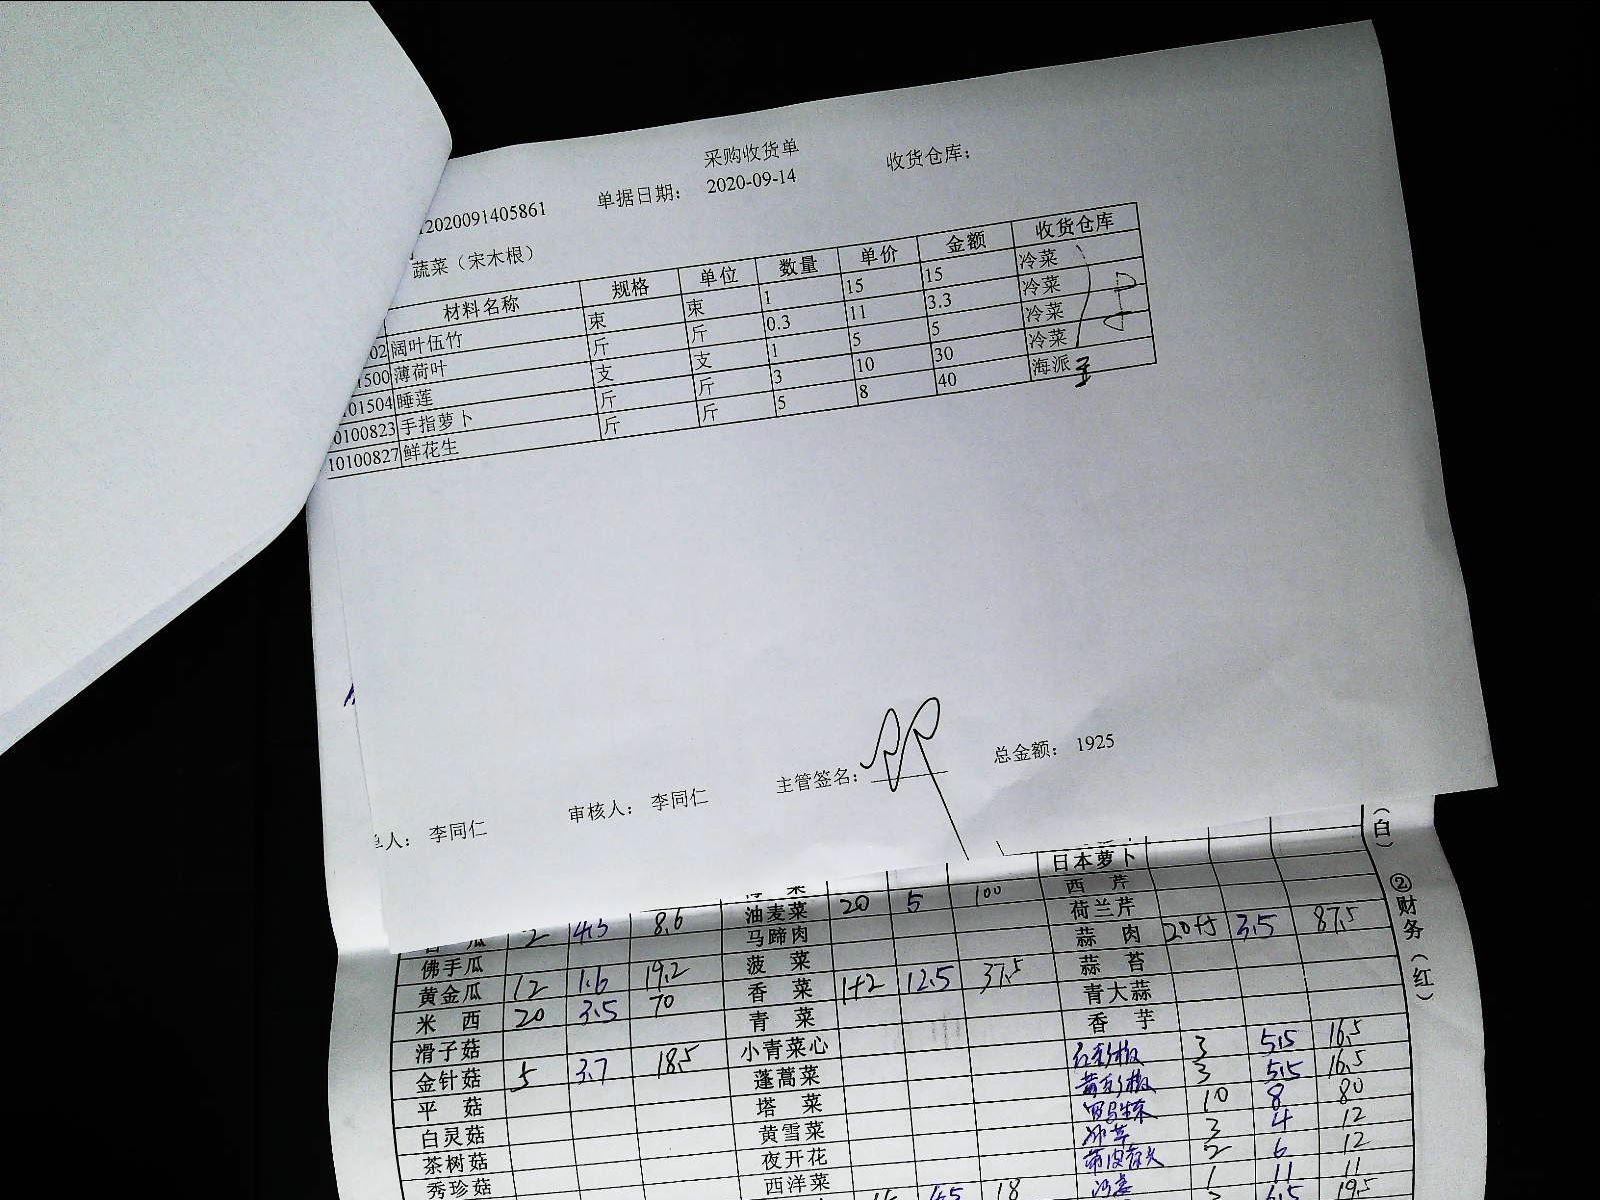 采购收货单
2020091405861 单据日期： 2020-09-14 收货仓库：
蔬菜（宋木根）
材料名称 规格 单位 数量 单价 金额 收货仓库
02 阔叶伍竹 束 束 1 15 15 冷菜
1500 薄荷叶 斤 斤 0.3 11 3.3 冷菜
101504 睡莲 支 支 1 5 5 冷菜
0100823 手指萝卜 斤 斤 3 10 30 冷菜
10100827 鲜花生 斤 斤 5 8 40 海派
单人： 李同仁 审核人： 李同仁 主管签名： 总金额： 1925
日本萝卜
西芹
油麦菜 20 5 100 荷兰芹
瓜 2 4.3 8.6 马蹄肉 蒜肉 20+5 3.5 87.5
佛手瓜 菠菜 蒜苔
黄金瓜 12 1.6 19.2 香菜 1+2 12.5 37.5 青大蒜
米西 20 3.5 70 青菜 香芋
滑子菇 小青菜心 3 5.5 16.5
金针菇 5 3.7 18.5 蓬蒿菜 3 5.5 16.5
平菇 塔菜 10 8 80
白灵菇 黄雪菜 3 4 12
茶树菇 夜开花 2 6 12
秀珍菇 西洋菜 1 11 11
4.5 18 6.5 19.5
（白） ②财务（红）